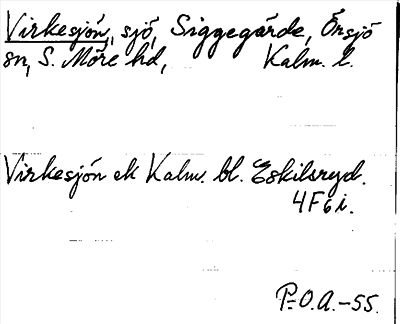 Virkesjön, sjö, Siggegårde, Örsjö
sn, S. Möre hd, Kalm. l.
Virkesjön ek Kalm. bl. Eskilsryd.
4F6i.
P-O.A.-55.